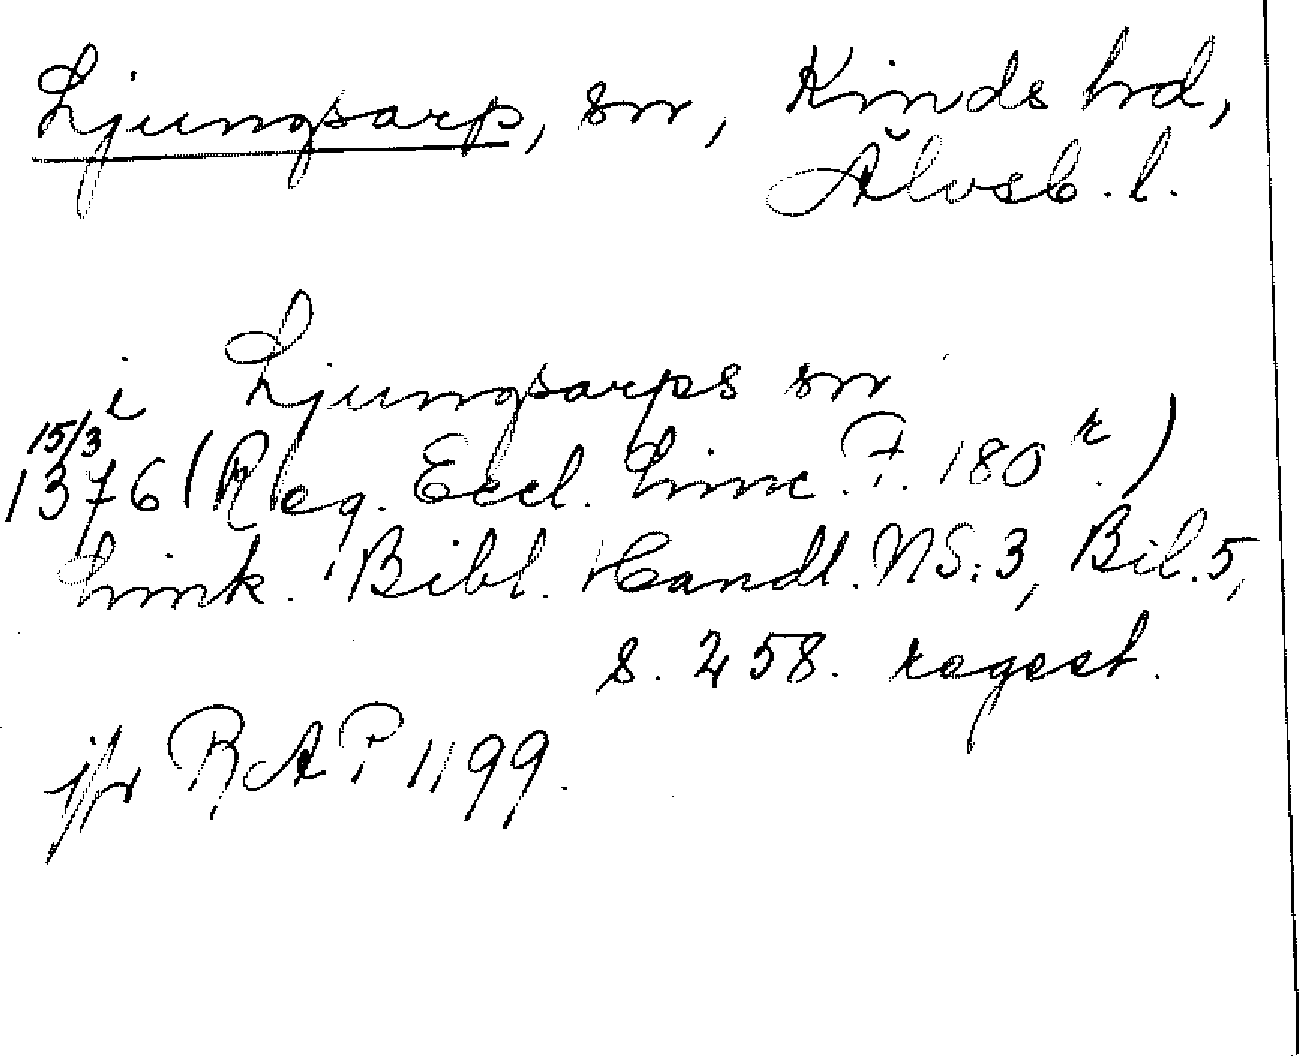 Ljungsarp, sn, Kinds hd,
Älvsb. l.
i Ljungsarps sn
15/3
1376 (Reg. Eccl. Linc. F. 180 r.)
Link. Bibl. Handl. NS:3, Bil. 5,
s. 258. regest.
jfr RAP 1199.